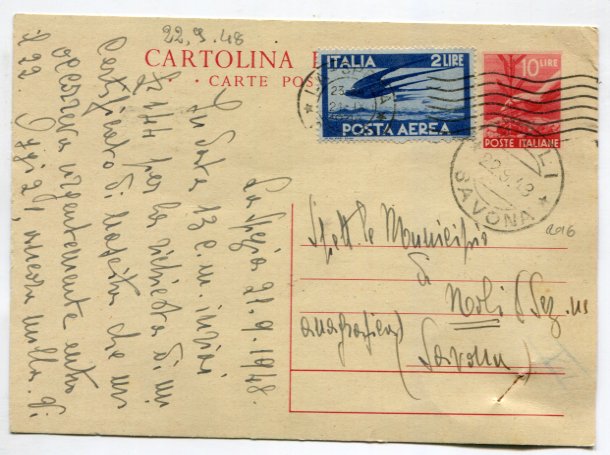 22.9.48
CARTOLINA
CARTE POS
ITALIA 2 LIRE
POSTA AEREA
10 LIRE
POSTE ITALIANE
22.9.48
SAVONA
Spett.le Municipio
di Noli (Sez.
anagrafica)
(Savona)
La Spezia 21.9.1948.
In data 13 c.m. inviai
L. 144 per la richiesta di un
Certificato di nascita che mi
occorreva urgentemente entro
il 22. Oggi 21, ancora nulla.